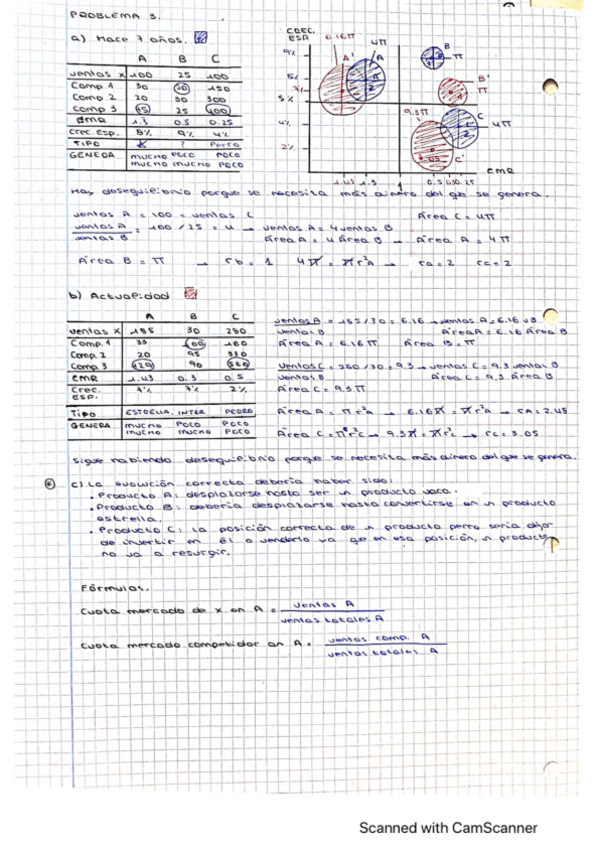 PROBLEMA 3.
a) Hace 7 años.
A B C
Ventas X 100 25 100
Comp 1 30 50 150
Comp 2 20 30 300
Comp 3 25 400
CMR 1.3 0.5 0.25
Crec. Esp. 8% 9% 4%
TIPO ? Perro
GENERA MUCHO POCO POCO
MUCHO MUCHO POCO
CREC. ESP.
6.16π 4π
9% A' A B π
B' π
5%
9.3π C 4π
4%
2% C'
1.43 1.3 1 0.5 0.25 CMR
Hay desequilibrio porque se necesita más dinero del que se genera.
Ventas A = 100 = Ventas C Área C = 4π
Ventas A / Ventas B = 100 / 25 = 4 → Ventas A = 4 Ventas B
Área A = 4 Área B → Área A = 4π
Área B = π → rb = 1 4π = πr²A → ra = 2 rc = 2
b) Actualidad
A B C
Ventas X 185 30 280
Comp. 1 35 100 160
Comp. 2 20 95 330
Comp. 3 90 560
CMR 1.43 0.3 0.5
Crec. ESP. 7% 7% 2%
Tipo ESTRELLA INTER PERRO
GENERA MUCHO POCO POCO
MUCHO MUCHO POCO
Ventas A / Ventas B = 185 / 30 = 6.16 → Ventas A = 6.16 VB
Área A = 6.16 Área B
Área A = 6.16π Área B = π
Ventas C / Ventas B = 280 / 30 = 9.3 → Ventas C = 9.3 Ventas B
Área C = 9.3 Área B
Área C = 9.3π
Área A = πr²A → 6.16π = πr²A → rA = 2.48
Área C = πr²c → 9.3π = πr²c → rc = 3.05
Sigue habiendo desequilibrio porque se necesita más dinero del que se genera.
c) La evolución correcta debería haber sido:
• Producto A: desplazarse hasta ser un producto vaca.
• Producto B: debería desplazarse hasta convertirse en un producto
estrella.
• Producto C: la posición correcta de un producto perro sería dejar
de invertir en él o venderlo ya que en esa posición, un producto
no va a resurgir.
Fórmulas.
Cuota mercado de X en A = Ventas A / Ventas totales A
Cuota mercado competidor en A = Ventas comp. A / Ventas totales A
Scanned with CamScanner